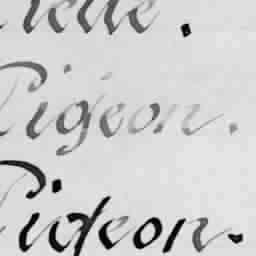 Pigeon.
Pigeon.